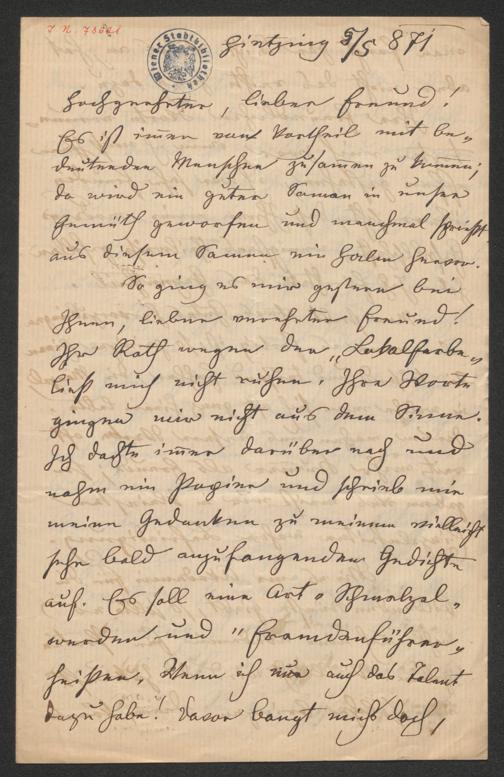 J. N. 73621
Wiener Stadtbibliothek
Hietzing 5/5 871
Hochgeehrter, lieber Freund!
Es ist immer von Vortheil mit be„
deutenden Menschen zusammen zu kommen;
da wird ein guter Samen in unser
Gemüth geworfen und manchmal sprießt
aus diesem Samen ein Halm hervor.
So ging es mir gestern bei
Ihnen, lieber verehrter Freund!
Ihr Rath wegen der „Lokalfarbe„
ließ mich nicht ruhen. Ihre Worte
gingen mir nicht aus dem Sinne.
Ich dachte immer darüber nach und
nahm ein Papier und schrieb mir
meine Gedanken zu meinem vielleicht
sehr bald anzufangenden Gedichte
auf. Es soll eine Art
werden und "Fremdenführer„
heißen. Wenn ich nur auch das Talent
dazu habe! Davor bangt mich doch,